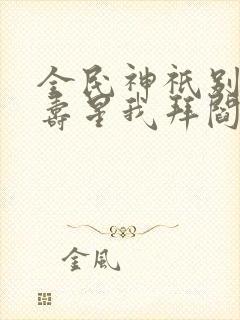 全民神祇别
寿星我拜阎
金风